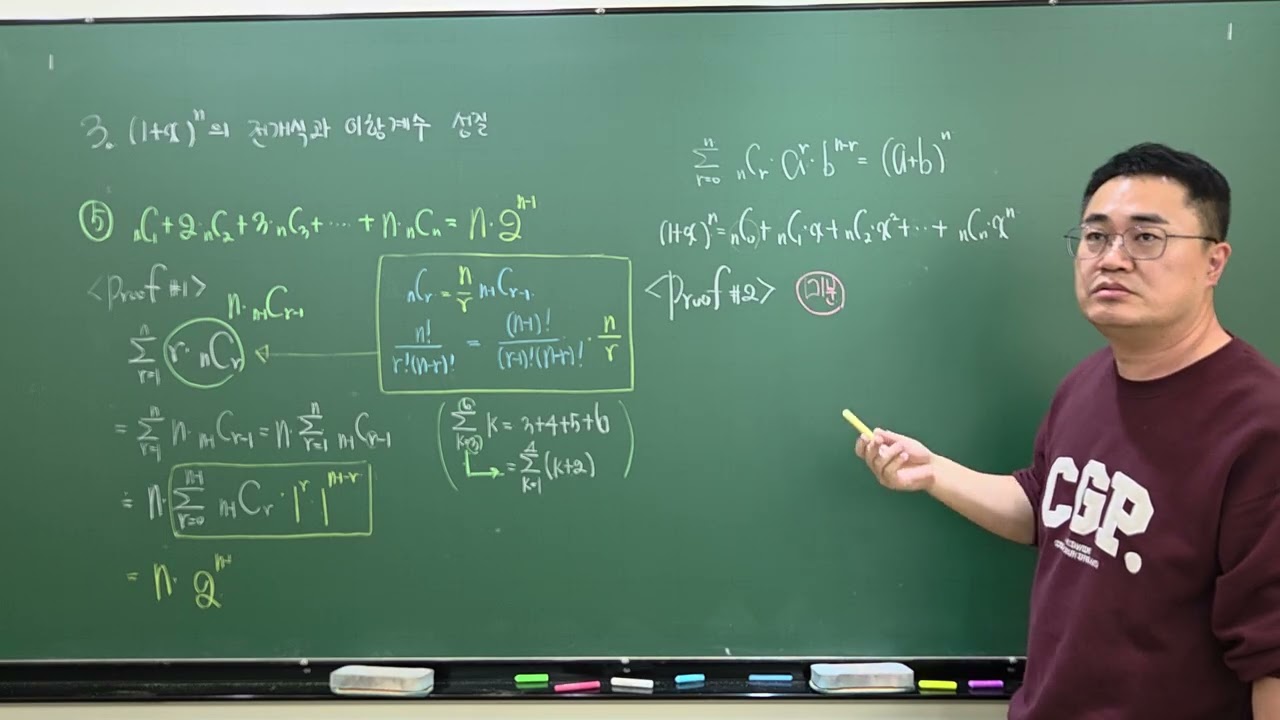 3. (1+x)ⁿ의 전개식과 이항계수 성질
⑤ ₙC₁+2·ₙC₂+3·ₙC₃+⋯+n·ₙCₙ=n·2ⁿ⁻¹
<proof #1>
n·ₙ₋₁Cᵣ₋₁
∑_{r=1}^{n} r·ₙCᵣ
=∑_{r=1}^{n} n·ₙ₋₁Cᵣ₋₁=n·∑_{r=1}^{n} ₙ₋₁Cᵣ₋₁
= n·∑_{r=0}^{n-1} ₙ₋₁Cᵣ·1^r·1^{n-1-r}
= n·2ⁿ⁻¹
ₙCᵣ=n/r ₙ₋₁Cᵣ₋₁
n!/r!(n-r)! = (n-1)!/(r-1)!(n-r)! · n/r
∑_{k=3}^{6} k = 3+4+5+6
=∑_{k=1}^{4}(k+2)
∑_{r=0}^{n} ₙCᵣ·a^r·b^{n-r}=(a+b)ⁿ
(1+x)ⁿ=ₙC₀+ₙC₁·x+ₙC₂·x²+⋯+ₙCₙ·xⁿ
<proof #2> 미분
CGP.